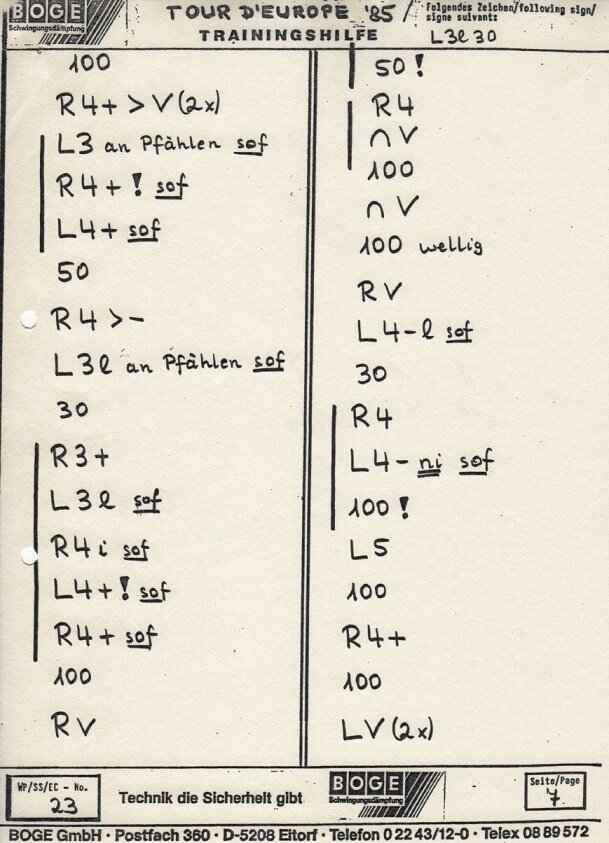 BOGE
Schwingungsdämpfung
TOUR D'EUROPE '85 /
TRAININGSHILFE
Folgendes Zeichen/following sign/
signe suivant:
L3l 30
100
R4+ > V (2x)
L3 an Pfählen sof
R4+! sof
L4+ sof
50
R4 > -
L3l an Pfählen sof
30
R3+
L3l sof
R4i sof
L4+! sof
R4+ sof
100
RV
50!
R4
∩V
100
∩V
100 wellig
RV
L4-l sof
30
R4
L4- ni sof
100!
L5
100
R4+
100
LV (2x)
WP/SS/EC - No.
23
Technik die Sicherheit gibt
BOGE
Schwingungsdämpfung
Seite/Page
7.
BOGE GmbH · Postfach 360 · D-5208 Eitorf · Telefon 0 22 43/12-0 · Telex 08 89 572